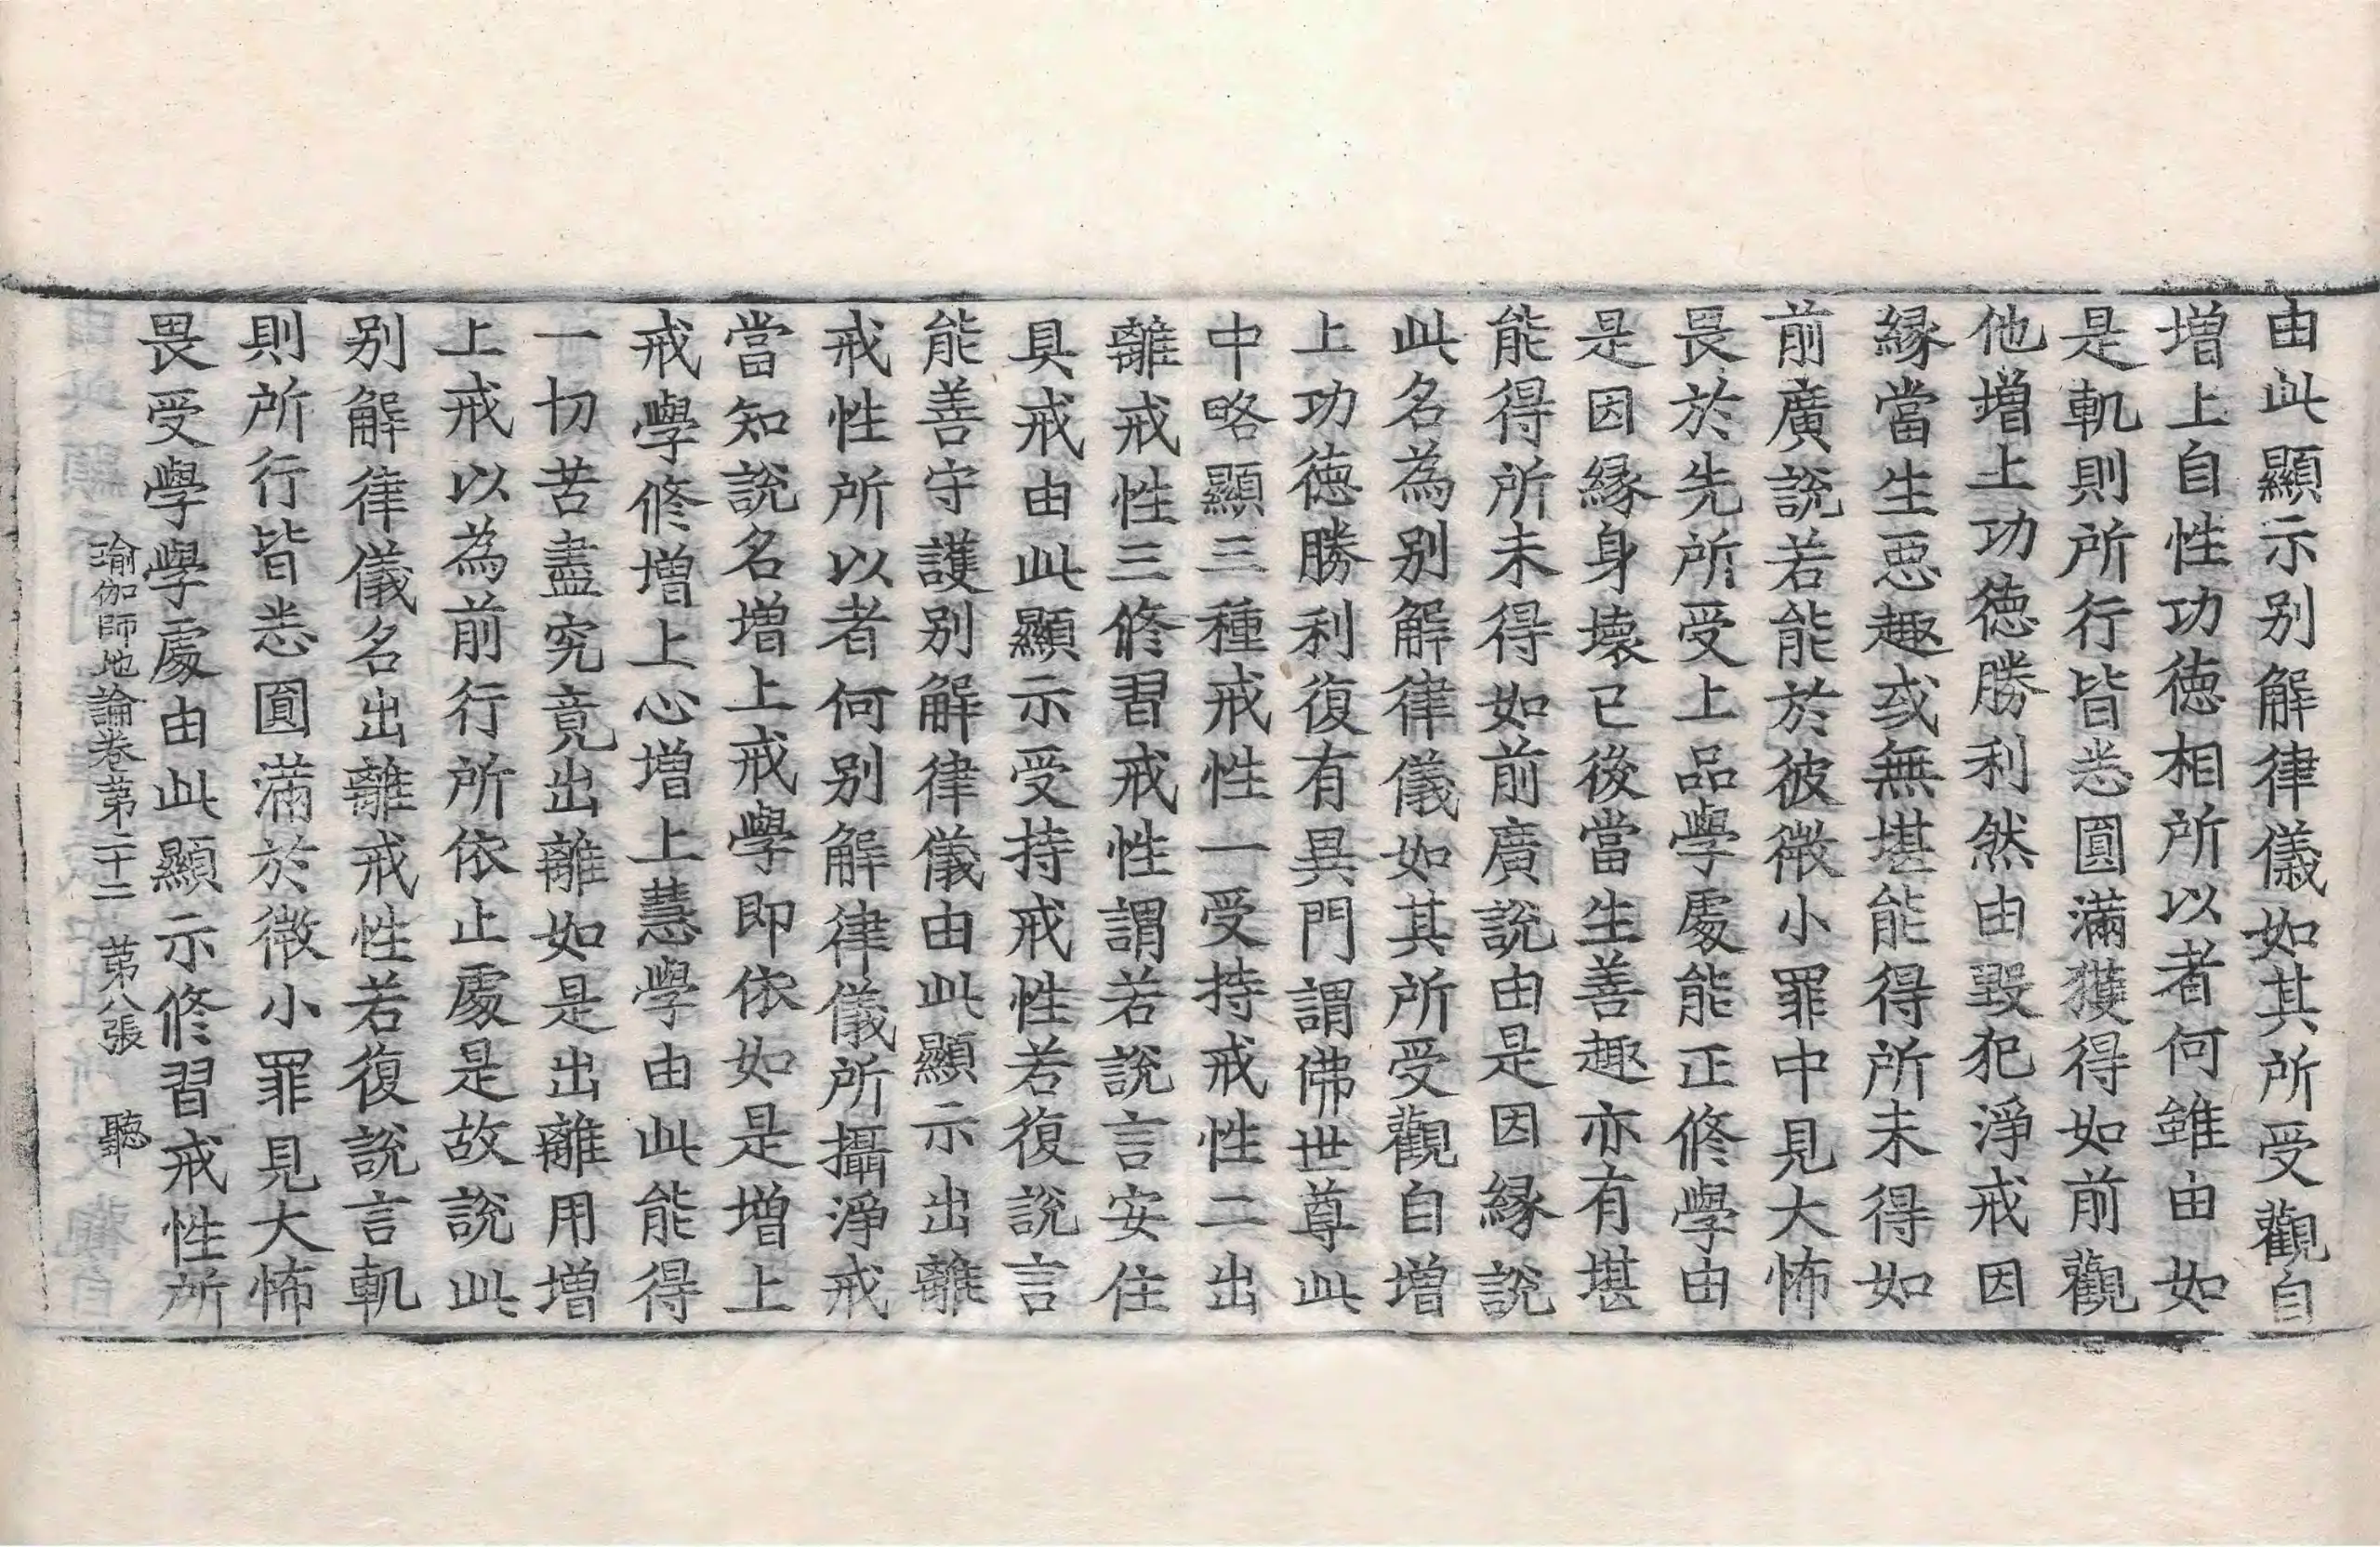 由此顯示别解律儀如其所受觀自
増上自性功徳相所以者何雖由如
是軌則所行皆悉圓滿獲得如前觀
他増上功徳勝利然由毀犯淨戒因
縁當生惡趣或無堪能得所未得如
前廣說若能於彼微小罪中見大怖
畏於先所受上品學處能正修學由
是因縁身壞已後當生善趣亦有堪
能得所未得如前廣說由是因縁說
此名為别解律儀如其所受觀自増
上功徳勝利復有異門謂佛世尊此
中略顯三種戒性一受持戒性二出
離戒性三修習戒性謂若說言安住
具戒由此顯示受持戒性若復說言
能善守護别解律儀由此顯示出離
戒性所以者何别解律儀所攝淨戒
當知說名増上戒學即依如是増上
戒學修増上心増上慧學由此能得
一切苦盡究竟出離如是出離用増
上戒以為前行所依止處是故說此
别解律儀名出離戒性若復說言軌
則所行皆悉圓滿於微小罪見大怖
畏受學學處由此顯示修習戒性所
瑜伽師地論卷第二十二　第八張　聽